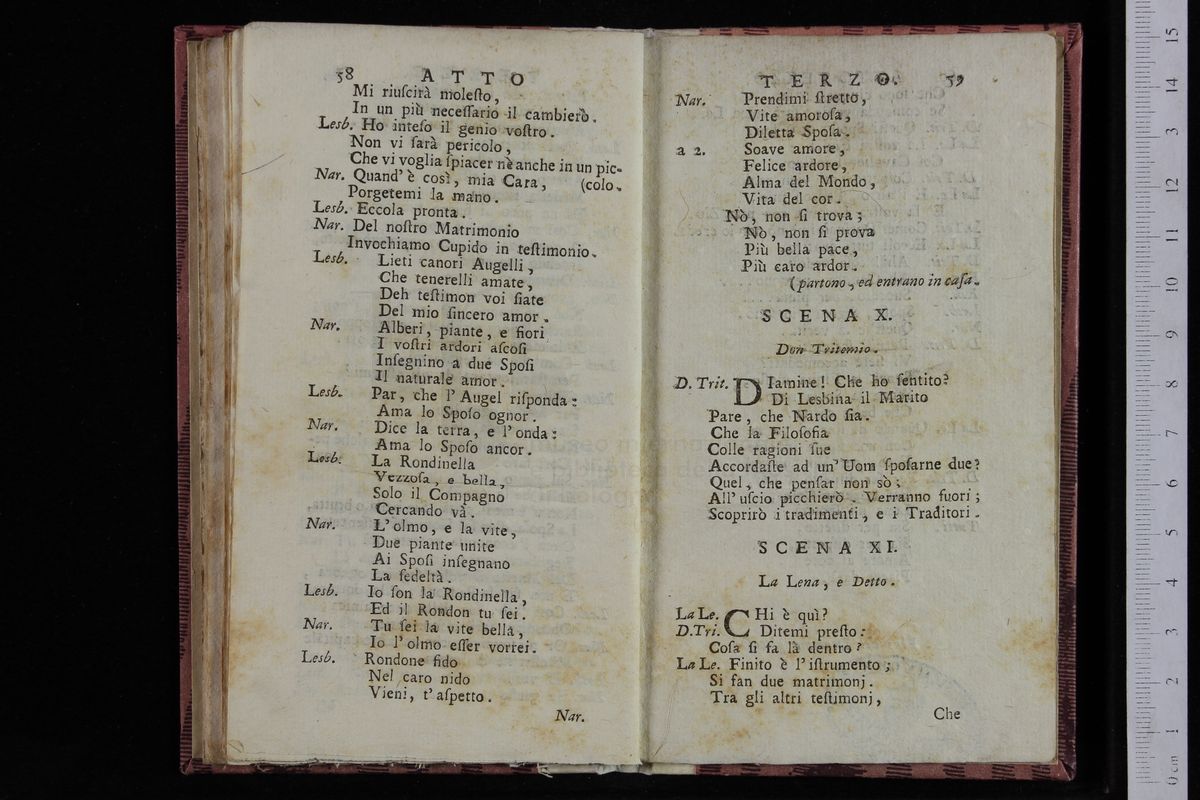 58 ATTO
Mi riuſcirà moleſto,
In un più neceſſario il cambierò.
Lesb. Ho inteſo il genio voſtro.
Non vi ſarà pericolo,
Che vi voglia ſpiacer nè anche in un pic-
Nar. Quand'è così, mia Cara, (colo.
Porgetemi la mano.
Lesb. Eccola pronta.
Nar. Del noſtro Matrimonio
Invochiamo Cupido in teſtimonio.
Lesb. Lieti canori Augelli,
Che tenerelli amate,
Deh teſtimon voi ſiate
Del mio ſincero amor.
Nar. Alberi, piante, e fiori
I voſtri ardori aſcoſi
Inſegnino a due Spoſi
Il naturale amor.
Lesb. Par, che l'Augel riſponda:
Ama lo Spoſo ognor.
Nar. Dice la terra, e l'onda:
Ama lo Spoſo ancor.
Lesb. La Rondinella
Vezzoſa, e bella,
Solo il Compagno
Cercando và.
Nar. L'olmo, e la vite,
Due piante unite
Ai Spoſi inſegnano
La fedeltà.
Lesb. Io ſon la Rondinella,
Ed il Rondon tu ſei.
Nar. Tu ſei la vite bella,
Io l'olmo eſſer vorrei.
Lesb. Rondone fido
Nel caro nido
Vieni, t'aſpetto.
Nar.
TERZO. 59
Nar. Prendimi ſtretto,
Vite amoroſa,
Diletta Spoſa.
a 2. Soave amore,
Felice ardore,
Alma del Mondo,
Vita del cor.
Nò, non ſi trova;
Nò, non ſi prova
Più bella pace,
Più caro ardor.
(partono, ed entrano in caſa.
SCENA X.
Don Tritemio.
D. Trit. DIamine! Che ho ſentito?
Di Lesbina il Marito
Pare, che Nardo ſia.
Che la Filoſofia
Colle ragioni ſue
Accordaſte ad un'Uom ſpoſarne due?
Quel, che penſar non sò;
All'uſcio picchierò. Verranno fuori;
Scoprirò i tradimenti, e i Traditori.
SCENA XI.
La Lena, e Detto.
La Le. CHi è quì?
D.Tri. Ditemi preſto:
Coſa ſi fa là dentro?
La Le. Finito è l'iſtrumento;
Si fan due matrimonj.
Tra gli altri teſtimonj,
Che
15
14
13
12
11
10
9
8
7
6
5
4
3
2
1
0 cm